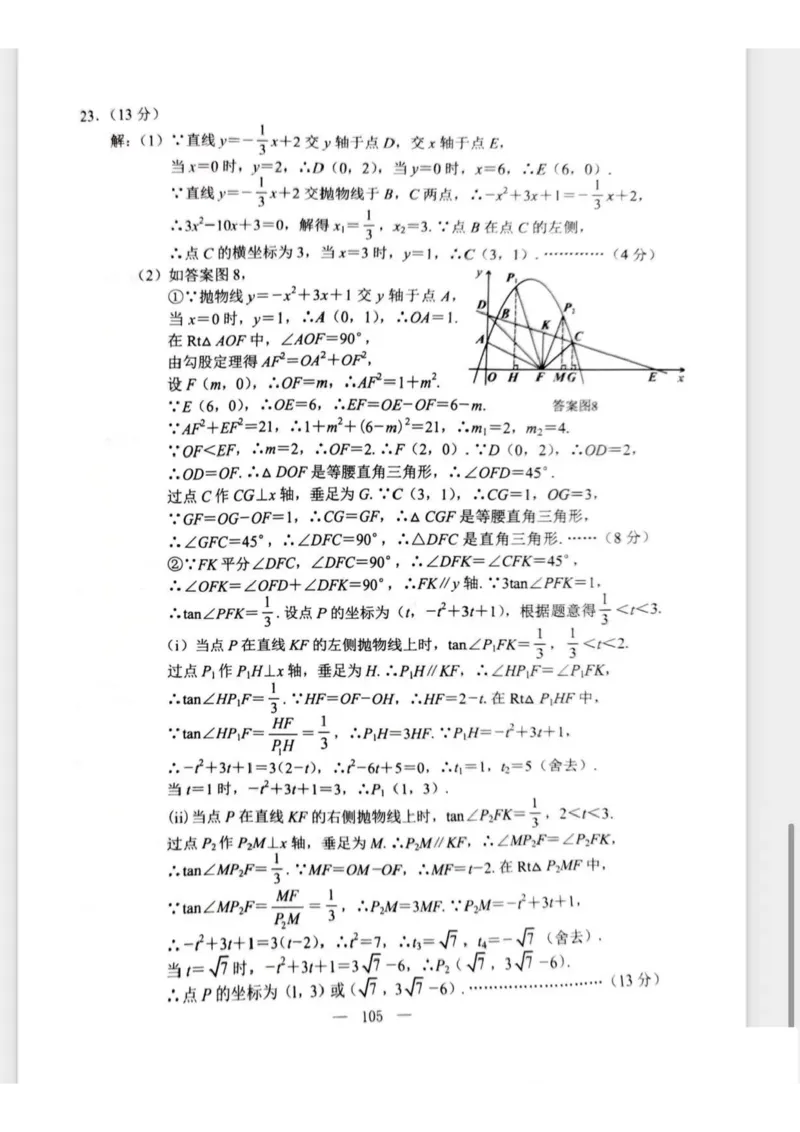 23.（13 分）
解：（1）∵直线 y=-1/3x+2 交 y 轴于点 D，交 x 轴于点 E，
当 x=0 时，y=2，∴D（0，2），当 y=0 时，x=6，∴E（6，0）.
∵直线 y=-1/3x+2 交抛物线于 B，C 两点，∴-x²+3x+1=-1/3x+2，
∴3x²-10x+3=0，解得 x₁=1/3，x₂=3. ∵点 B 在点 C 的左侧，
∴点 C 的横坐标为 3，当 x=3 时，y=1，∴C（3，1）.…………（4 分）
（2）如答案图 8，
①∵抛物线 y=-x²+3x+1 交 y 轴于点 A，
当 x=0 时，y=1，∴A（0，1），∴OA=1.
在 Rt△ AOF 中，∠AOF=90°，
由勾股定理得 AF²=OA²+OF²，
设 F（m，0），∴OF=m，∴AF²=1+m².
∵E（6，0），∴OE=6，∴EF=OE-OF=6-m.
y P₁ D B P₂ K A C O H F M G E x
答案图8
∵AF²+EF²=21，∴1+m²+(6-m)²=21，∴m₁=2，m₂=4.
∵OF<EF，∴m=2，∴OF=2. ∴F（2，0）. ∵D（0，2），∴OD=2，
∴OD=OF. ∴△ DOF 是等腰直角三角形，∴∠OFD=45°.
过点 C 作 CG⊥x 轴，垂足为 G. ∵C（3，1），∴CG=1，OG=3，
∵GF=OG-OF=1，∴CG=GF，∴△ CGF 是等腰直角三角形，
∴∠GFC=45°，∴∠DFC=90°，∴△DFC 是直角三角形.……（8 分）
②∵FK 平分∠DFC，∠DFC=90°，∴∠DFK=∠CFK=45°，
∴∠OFK=∠OFD+∠DFK=90°，∴FK∥y 轴. ∵3tan∠PFK=1，
∴tan∠PFK=1/3. 设点 P 的坐标为（t，-t²+3t+1），根据题意得1/3<t<3.
（i）当点 P 在直线 KF 的左侧抛物线上时，tan∠P₁FK=1/3，1/3<t<2.
过点 P₁作 P₁H⊥x 轴，垂足为 H. ∴P₁H∥KF，∴∠HP₁F=∠P₁FK，
∴tan∠HP₁F=1/3. ∵HF=OF-OH，∴HF=2-t. 在 Rt△ P₁HF 中，
∵tan∠HP₁F=HF/P₁H=1/3，∴P₁H=3HF. ∵P₁H=-t²+3t+1，
∴-t²+3t+1=3(2-t)，∴t²-6t+5=0，∴t₁=1，t₂=5（舍去）.
当 t=1 时，-t²+3t+1=3，∴P₁（1，3）.
(ii)当点 P 在直线 KF 的右侧抛物线上时，tan∠P₂FK=1/3，2<t<3.
过点 P₂作 P₂M⊥x 轴，垂足为 M. ∴P₂M∥KF，∴∠MP₂F=∠P₂FK，
∴tan∠MP₂F=1/3. ∵MF=OM-OF，∴MF=t-2. 在 Rt△ P₂MF 中，
∵tan∠MP₂F=MF/P₂M=1/3，∴P₂M=3MF. ∵P₂M=-t²+3t+1，
∴-t²+3t+1=3(t-2)，∴t²=7，∴t₃=√7，t₄=-√7（舍去）.
当 t=√7 时，-t²+3t+1=3√7-6，∴P₂（√7，3√7-6）.
∴点 P 的坐标为（1，3）或（√7，3√7-6）.…………………………（13 分）
— 105 —